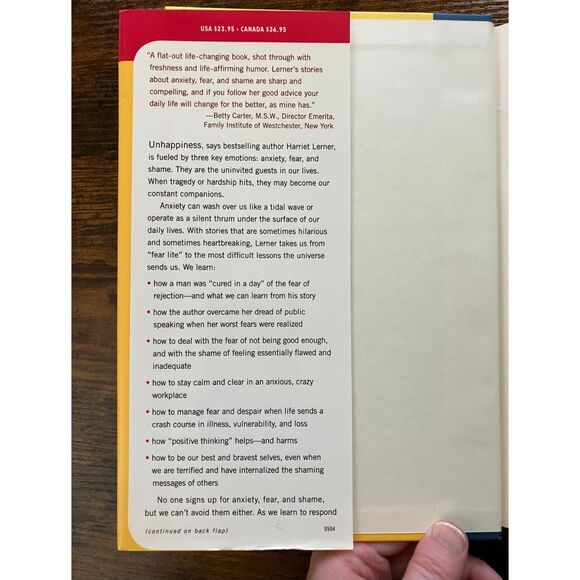 USA $23.95 • CANADA $36.95
"A flat-out life-changing book, shot through with
freshness and life-affirming humor. Lerner's stories
about anxiety, fear, and shame are sharp and
compelling, and if you follow her good advice your
daily life will change for the better, as mine has."
—Betty Carter, M.S.W., Director Emerita,
Family Institute of Westchester, New York
Unhappiness, says bestselling author Harriet Lerner,
is fueled by three key emotions: anxiety, fear, and
shame. They are the uninvited guests in our lives.
When tragedy or hardship hits, they may become our
constant companions.
Anxiety can wash over us like a tidal wave or
operate as a silent thrum under the surface of our
daily lives. With stories that are sometimes hilarious
and sometimes heartbreaking, Lerner takes us from
"fear lite" to the most difficult lessons the universe
sends us. We learn:
• how a man was "cured in a day" of the fear of
rejection—and what we can learn from his story
• how the author overcame her dread of public
speaking when her worst fears were realized
• how to deal with the fear of not being good enough,
and with the shame of feeling essentially flawed and
inadequate
• how to stay calm and clear in an anxious, crazy
workplace
• how to manage fear and despair when life sends a
crash course in illness, vulnerability, and loss
• how "positive thinking" helps—and harms
• how to be our best and bravest selves, even when
we are terrified and have internalized the shaming
messages of others
No one signs up for anxiety, fear, and shame,
but we can't avoid them either. As we learn to respond
(continued on back flap)
0504